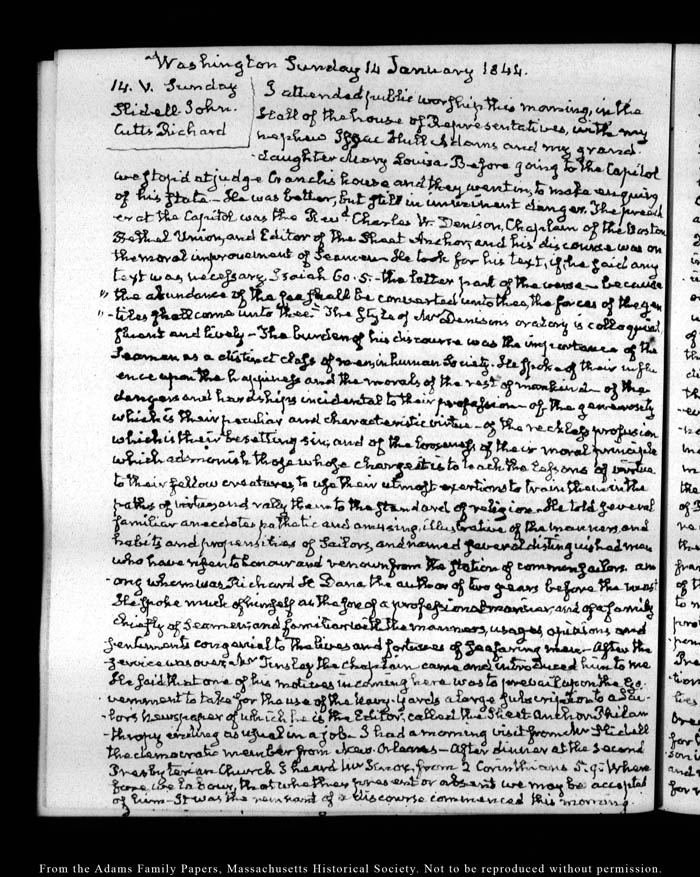 Washington Sunday 14 January 1844.
14. V. Sunday
Slidell. John.
Cutts Richard
I attended public worship this morning, in the
Hall of the house of Representatives, with my
nephew Isaac Hull Adams and my grand-
daughter Mary Louisa Before going to the Capitol
we stop'd at judge Cranch's house and they went on, to make enquiry
of his state - He was better, but still in imminent danger. The preach
er at the Capitol was the Revd. Charles W. Denison, Chaplain of the Boston
Bethel Union, and Editor of the Sheet Anchor, and his discourse was on
the moral improvement of Seamen - He took for his text, if, he said any
text was necessary, Isaiah 60. 5. - the latter part of the verse - because
" the abundance of the sea shall be converted unto thee, the forces of the gen
" -tiles shall come unto thee." The style of Mr Denison's oratory is colloquial,
fluent and lively - The burden of his discourse was the importance of the
Seaman as a distinct class of men, in human Society. He spoke of their influ
ence upon the happiness and the morals of the rest of mankind - of the
dangers and hardships incidental to their profession - of the generosity
which is their peculiar and characteristic virtue - of the reckless profusion
which is their besetting sin; and of the looseness of their moral principle
which admonish those whose charge it is to teach the lessons of virtue
to their fellow creatures, to use their utmost exertions to train them in the
paths of virtue, and rally them to the standard of religion - He told several
familiar anecdotes pathetic and amusing, illustrative of the manners, and
habits and propensities of Sailors, and named several distinguished men
who have risen to honour and renown from the station of common sailors. am
-ong whom was Richard H. Dana the author of two years before the mast
He spoke much of himself as the son of a professional mariner and of a family
chiefly of Seamen; and familiar with the manners, usages opinions and
sentiments congenial to the lives and fortunes of Seafaring men - After the
service was over, Mr Tinsley the chaplain came and introduced him to me
He said that one of his motives in coming here was to prevail upon the Go
vernment to take for the use of the Navy-Yards a large subscription to a Sai-
lors Newspaper of which he is the Editor, called the Sheet Anchor. Philan
thropy ending as usual in a job. I had a morning visit from Mr Slidell
the democratic member from New-Orleans - After dinner at the second
Presbyterian Church I heard Mr Knox, from 2 Corinthians 5. 9. Where
fore we labour, that whether present or absent we may be accepted
of him - It was the remnant of a discourse commenced this morning.
From the Adams Family Papers, Massachusetts Historical Society. Not to be reproduced without permission.